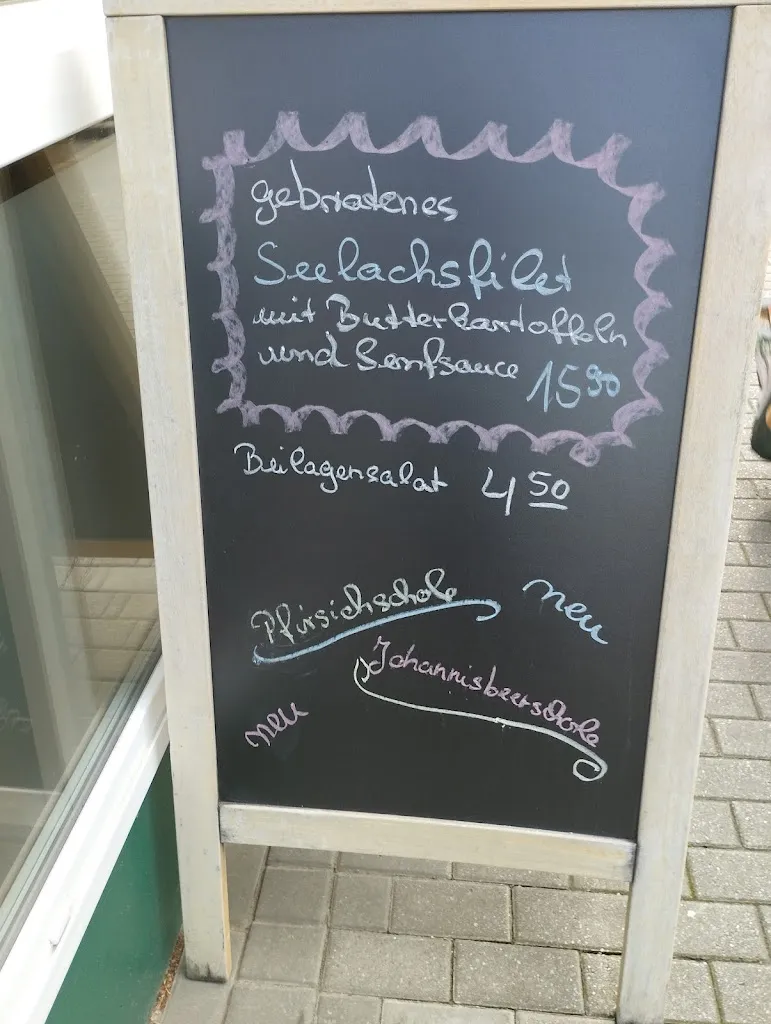 gebratenes
Seelachsfilet
mit Butterkartoffeln
und Senfsauce 15,90
Beilagensalat 4 50
Pfirsichschole neu
Johannisbeerschole
neu